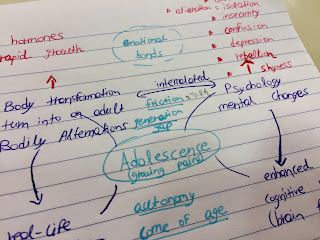 isolation
insecurity
confusion
depression
rebellion
shyness
hormones
rapid growth
emotional
bonds
interrelated
Body transformation
turn into an adult
Bodily Alternations
friction
generation
gap
Psychology
mental changes
Adolescence
(growing pains)
autonomy
come of age
real-life
enhanced
cognitive
(brain